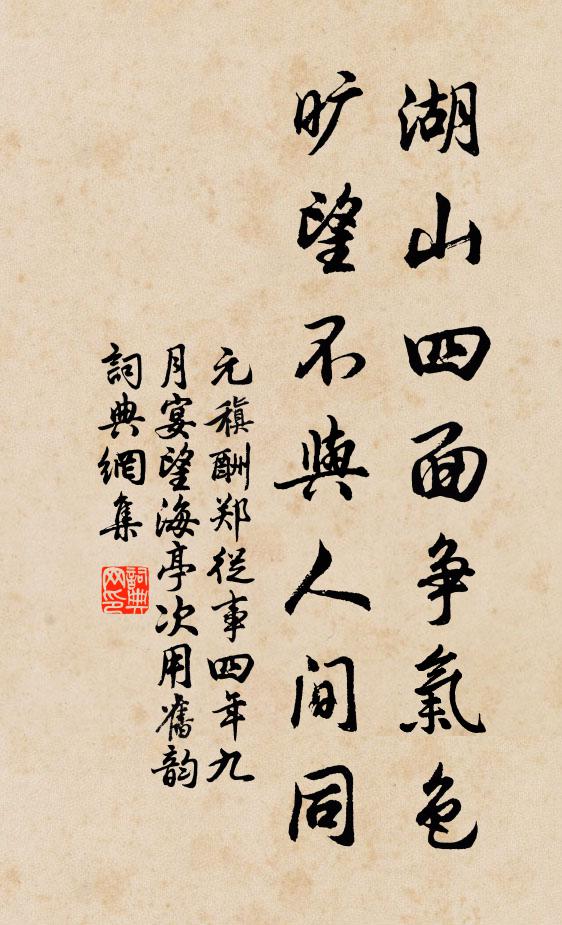 湖山四面争氣色
旷望不與人間同
元稹酬郑從事四年九
月宴望海亭次用舊韵
詞典網集
詞典网印